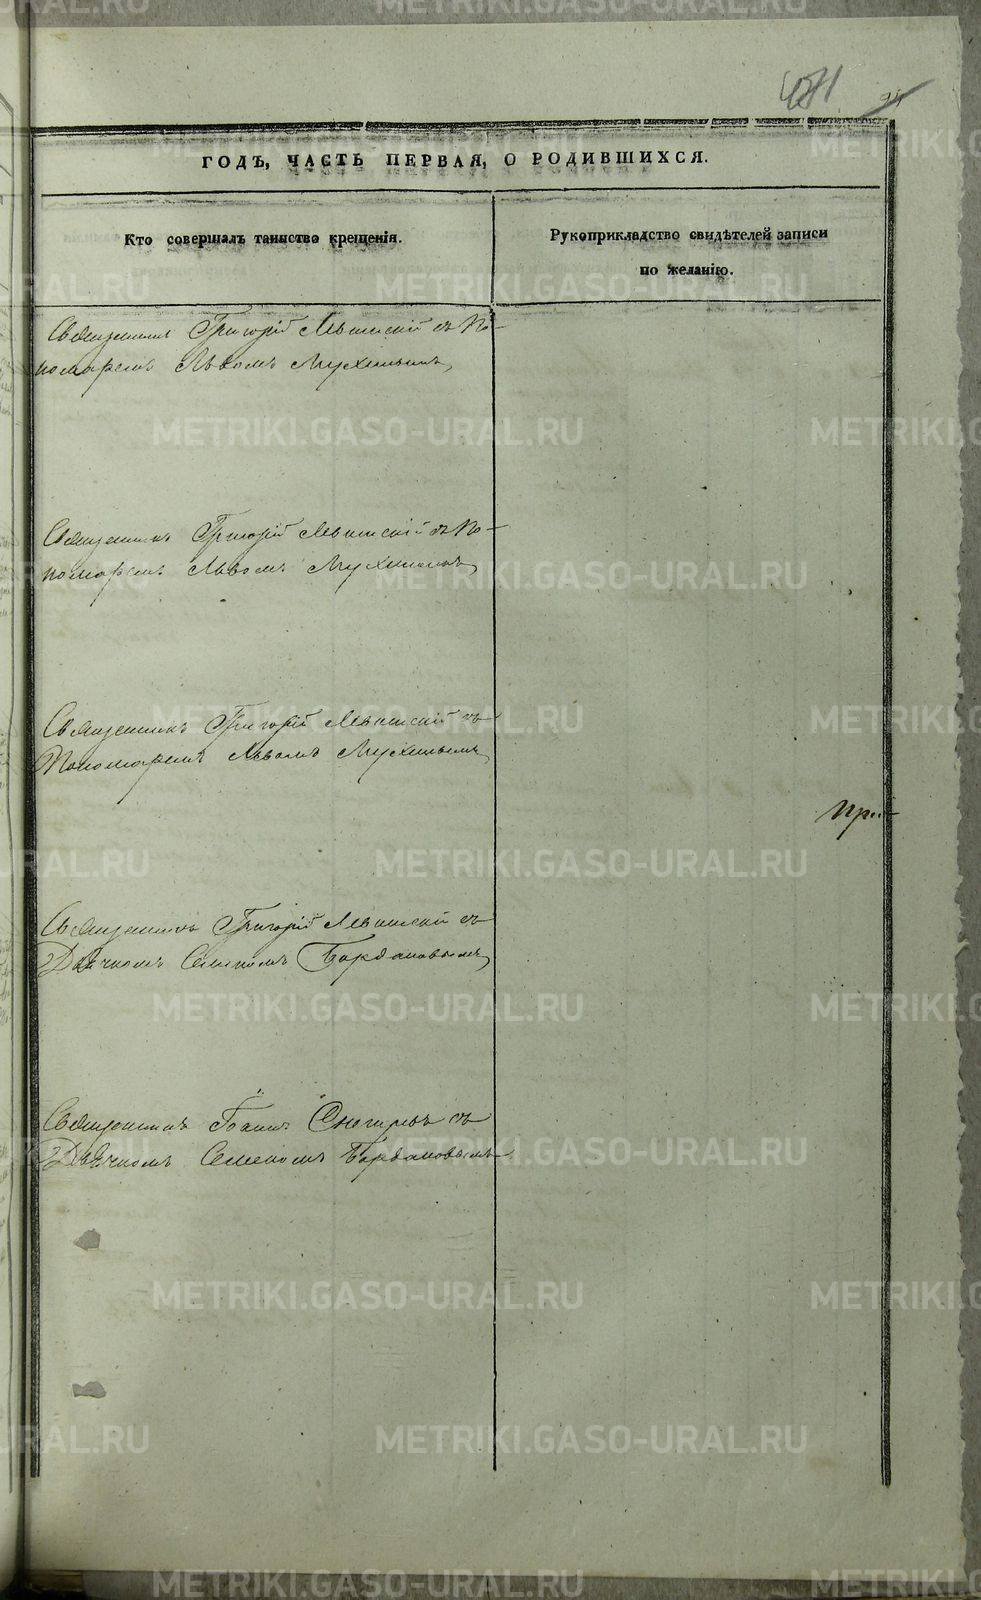 ГОДЪ, ЧАСТЬ ПЕРВАЯ, О РОДИВШИХСЯ.
Кто совершалъ таинство крещенія.
Рукоприкладство свидѣтелей записи
по желанію.
Священникъ Григорій Левитскій съ По-
номаремъ Львомъ Мухинымъ
Священникъ Григорій Левитскій съ По-
номаремъ Львомъ Мухинымъ
Священникъ Григорій Левитскій съ
Пономаремъ Львомъ Мухинымъ
При-
Священникъ Григорій Левитскій съ
Дьячкомъ Семеномъ Бардановымъ
Священникъ Іоаннъ Снегиревъ съ
Дьячкомъ Семеномъ Бардановымъ
METRIKI.GASO-URAL.RU